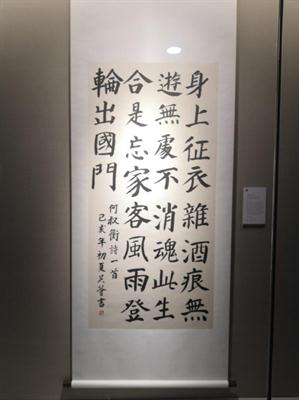 身上征衣雜酒痕無
遊無處不消魂此生
合是忘家客風雨登
輪出國門
何叔衡詩一首
己亥年初夏吳書